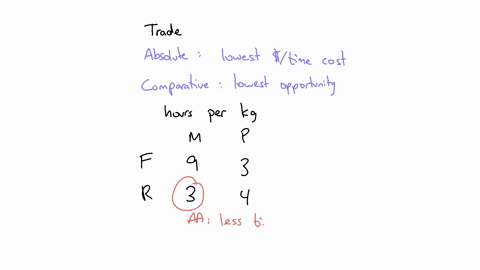 Trade
Absolute : lowest $/time cost
Comparative : lowest opportunity
hours per kg
M P
F 9 3
R 3 4
AA: less ti